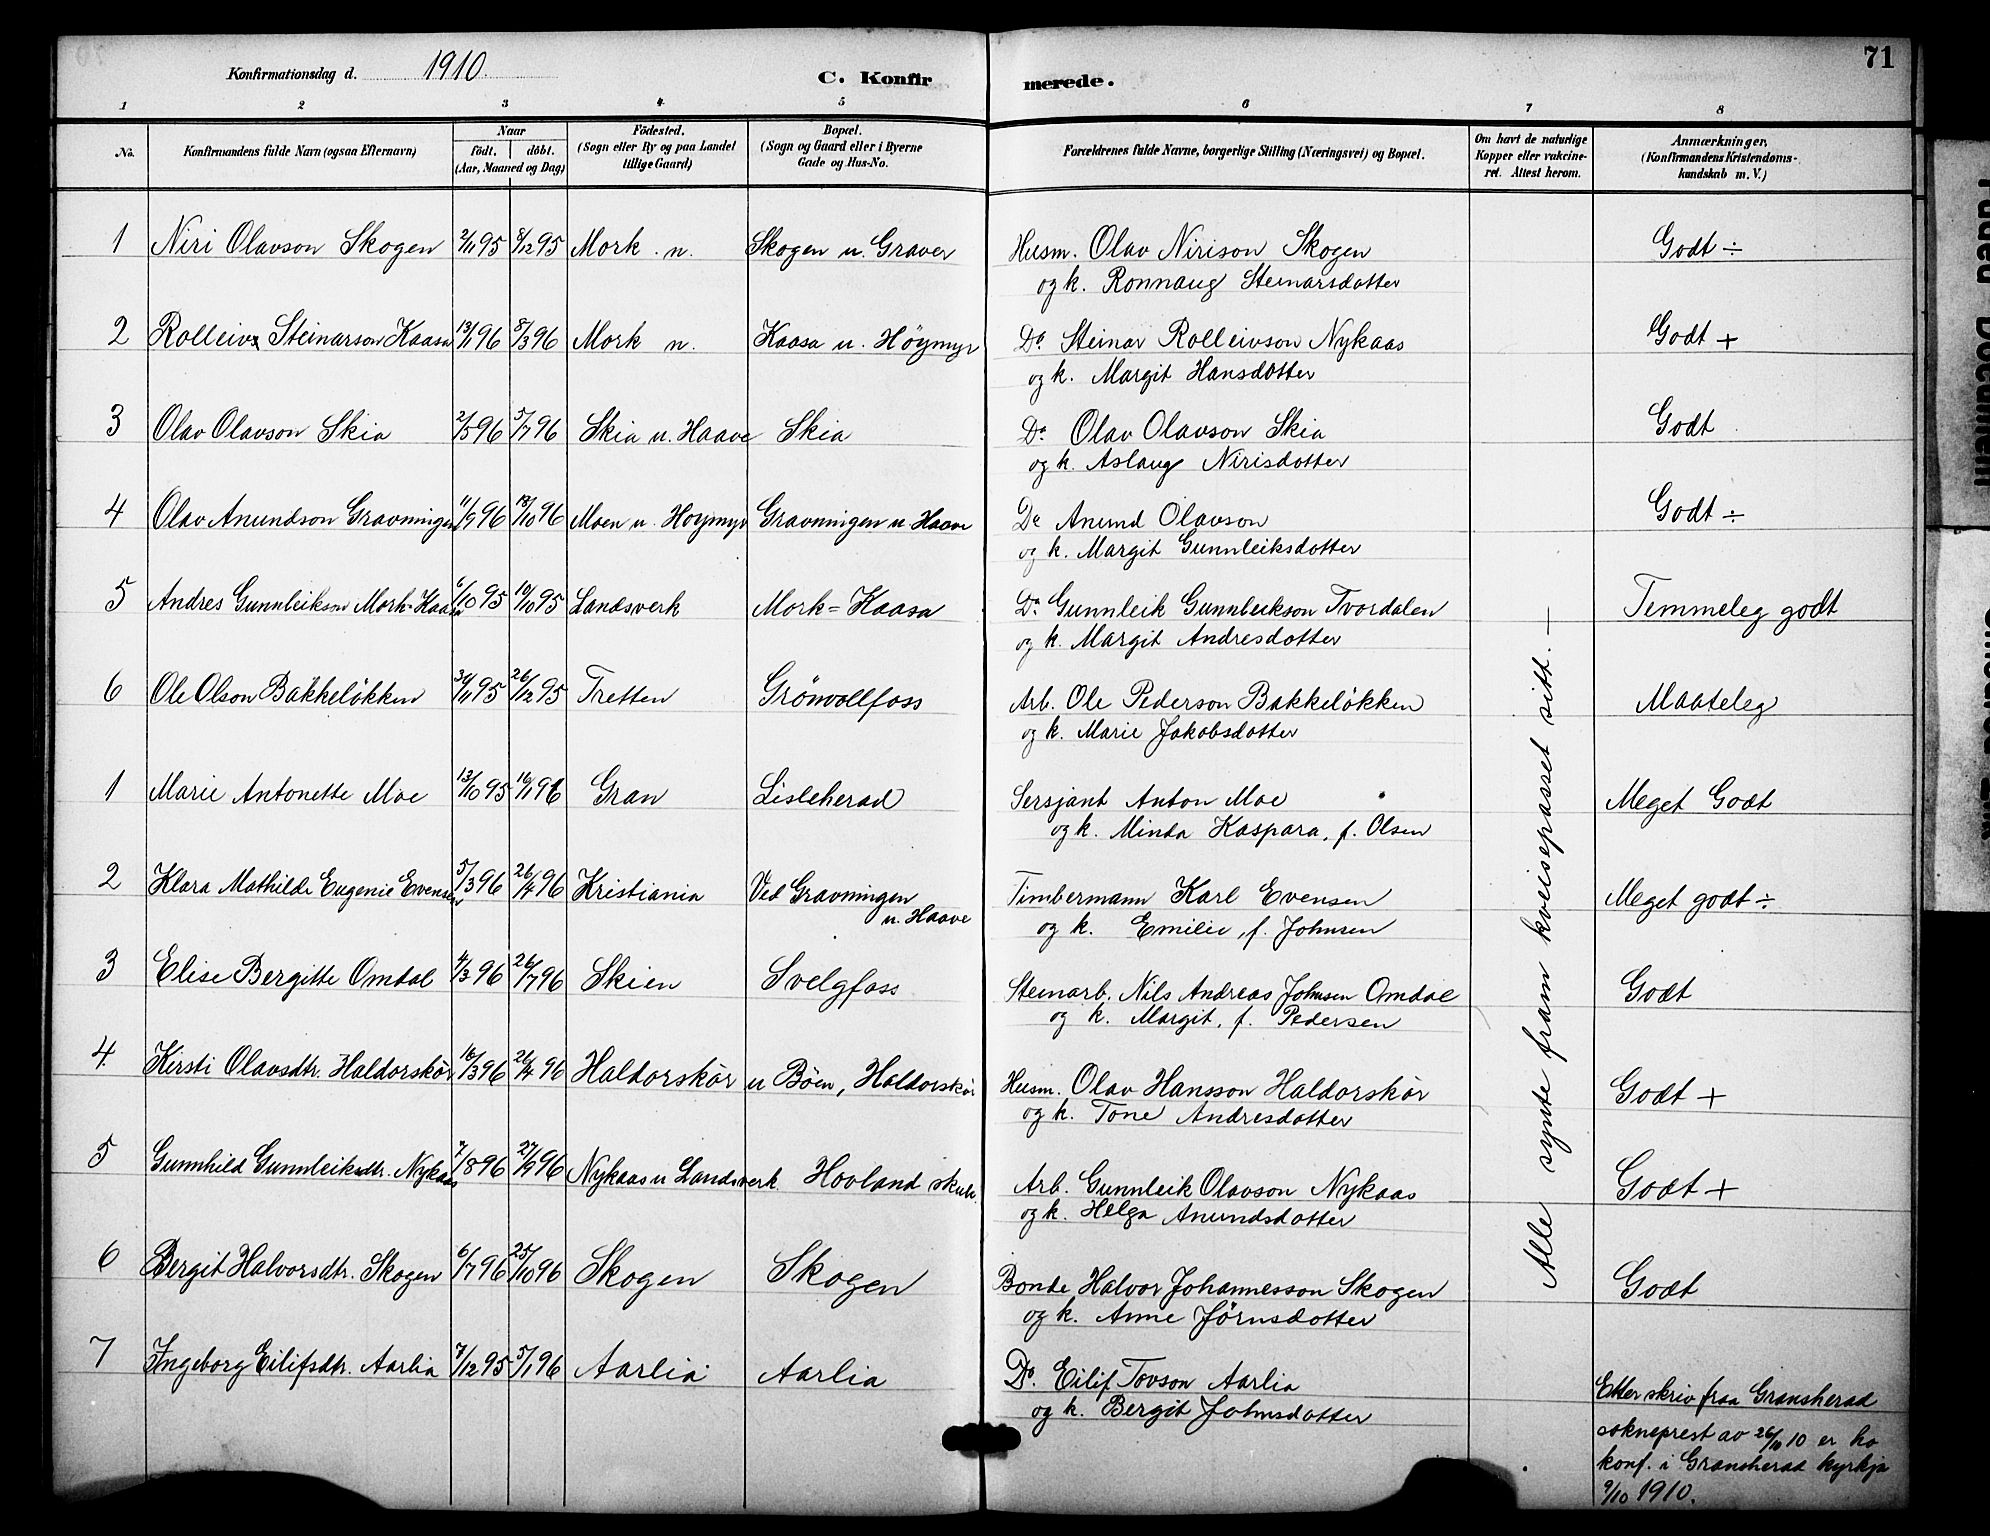 Konfirmationsdag d. 1910. C. Konfirmerede. 71
1 2 3 4 5 6 7 8
No. Konfirmandens fulde Navn (ogsaa Efternavn)
Naar
födt. döbt.
(Aar, Maaned og Dag)
Födested.
(Sogn eller By og paa Landet
tillige Gaard)
Bopæl.
(Sogn og Gaard eller i Byerne
Gade og Hus-No.
Forældrenes fulde Navne, borgerlige Stilling (Næringsvei) og Bopæl.
Om havt de naturlige
Kopper eller vakcine-
ret. Attest herom.
Anmærkninger,
(Konfirmandens Kristendoms-
kundskab m. V.)
1 Niri Olavson Skogen 2/11 95 8/12 95 Mork n. Skogen u. Graver Husm. Olav Nirison Skogen Godt ÷
og k. Ronnaug Steinarsdotter
2 Rolleiv Steinarson Kaasa 13/1 96 8/3 96 Mork n. Kaasa u. Höymyr Do Steinar Rolleivson Nykaas Godt +
og k. Margit Hansdotter
3 Olav Olavson Skia 2/5 96 5/7 96 Skia u. Haave Skia Do Olav Olavson Skia Godt
og k. Aslaug Nirisdotter
4 Olav Anundson Gravningen 11/9 96 18/10 96 Moen u. Hoymyr Gravningen u Haave Do Anund Olavson Godt ÷
og k. Margit Gunnleiksdotter
5 Andres Gunnleikson Mork-Kaasa 6/10 95 19/10 95 Landsverk Mork=Kaasa Do Gunnleik Gunnleikson Tvordalen Temmeleg godt
og k. Margit Andresdotter
6 Ole Olson Bakkelökken 30/11 95 26/12 95 Tretten Grönvollfoss Arb. Ole Pederson Bakkelökken Maateleg
og k. Marie Jakobsdotter
1 Marie Antonette Moe 13/10 95 16/1 96 Gran Lisleherad Sersjant Anton Moe Meget Godt
og k. Minda Kaspara, f. Olsen
2 Klara Mathilde Eugenie Evensen 5/3 96 26/4 96 Kristiania Ved Gravningen Timbermann Karl Evensen Meget godt ÷
u. Haave
og k. Emilie, f. Johnsen
3 Elise Bergitte Omdal 4/3 96 26/7 96 Skien Svelgfoss Steinarb. Nils Andreas Johnsen Omdal Godt
og k. Margit, f. Pedersen
4. Kirsti Olavsdtr. Haldorskör 16/3 96 26/4 96 Haldorskör u Böen, Haldorskör Husm. Olav Hansson Haldorskör Godt +
og k. Tone Andresdotter
5 Gunnhild Gunnleiksdtr. Nykaas 7/8 96 27/9 96 Nykaas u Landsverk Hovland skule Arb. Gunnleik Olavson Nykaas Godt +
og k. Helga Anundsdotter
6 Bergit Halvorsdtr. Skogen 6/7 96 25/10 96 Skogen Skogen Bonde Halvor Johannesson Skogen Godt
og k. Anne Jörnsdotter
7 Ingeborg Eilifsdtr. Aarlia 7/12 95 5/1 96 Aarlia Aarlia Do. Eilif Tovson Aarlia
og k. Bergit Johnsdotter
Etter skriv fraa Gransherad
sokneprest av 26/10 10 er ho
konf. i Gransherad kyrkja
9/10 1910.
Alle synte fram kveisepasset sitt. —